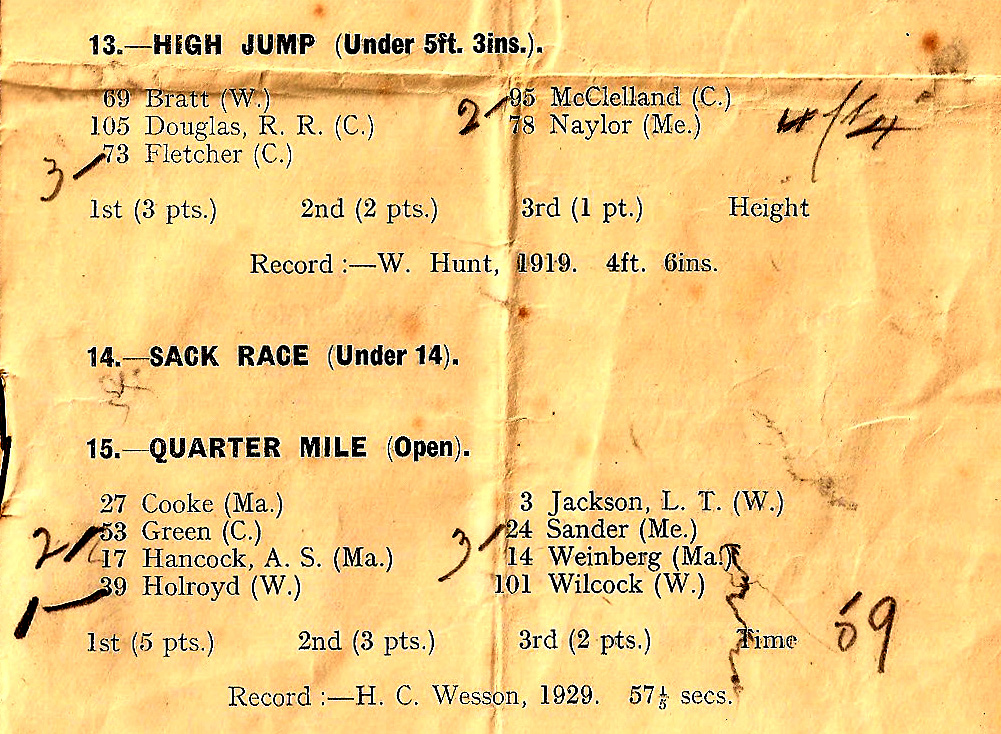 13.—HIGH JUMP (Under 5ft. 3ins.).
69 Bratt (W.) 2 95 McClelland (C.)
105 Douglas, R. R. (C.) 78 Naylor (Me.)
3 73 Fletcher (C.)
1st (3 pts.) 2nd (2 pts.) 3rd (1 pt.) Height
Record :—W. Hunt, 1919. 4ft. 6ins.
14.—SACK RACE (Under 14).
15.—QUARTER MILE (Open).
27 Cooke (Ma.) 3 Jackson, L. T. (W.)
2 53 Green (C.) 3 24 Sander (Me.)
17 Hancock, A. S. (Ma.) 14 Weinberg (Ma.)
1 39 Holroyd (W.) 101 Wilcock (W.)
1st (5 pts.) 2nd (3 pts.) 3rd (2 pts.) Time 59
Record :—H. C. Wesson, 1929. 57⅕ secs.